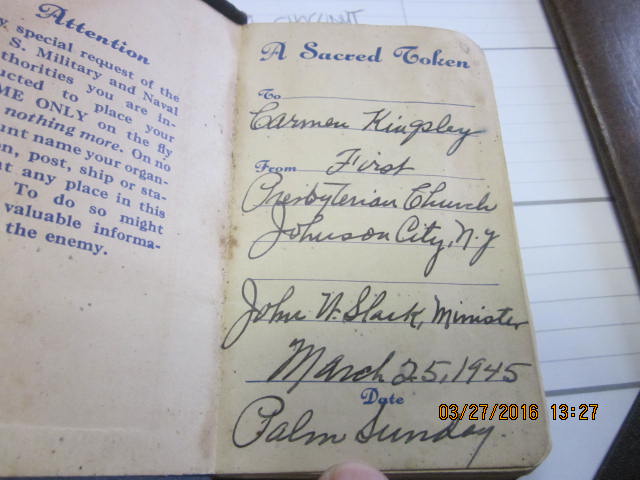 Attention
special request of the
S. Military and Naval
thorities you are in-
ucted to place your
ME ONLY on the fly
nothing more. On no
unt name your organ-
en, post, ship or sta-
at any place in this
To do so might
valuable informa-
the enemy.
A Sacred Token
To
Carmen Kingsley
From First
Presbyterian Church
Johnson City, N.Y
John W. Slack, Minister
March 25, 1945
Date
Palm Sunday.
03/27/2016 13:27